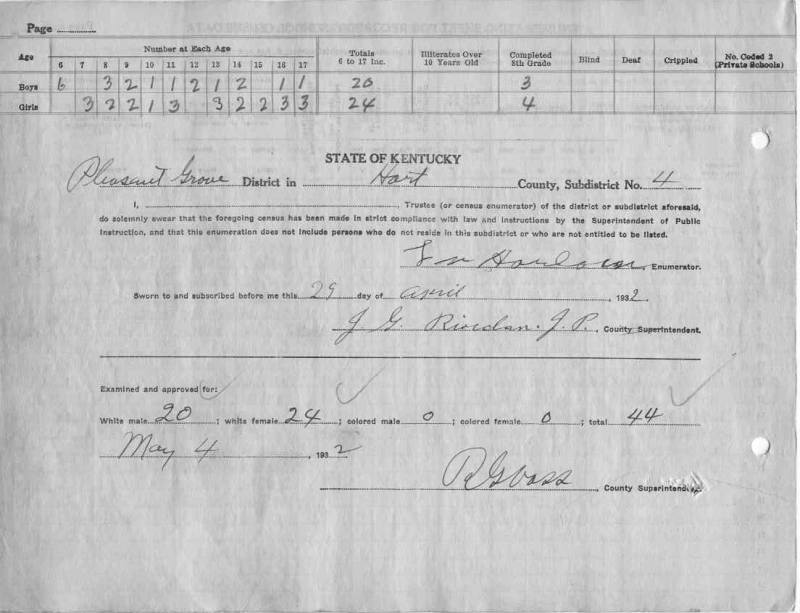 Page
Age Number at Each Age Totals 6 to 17 Inc. Illiterates Over 10 Years Old Completed 8th Grade Blind Deaf Crippled No. Coded 2 (Private Schools)
6 7 8 9 10 11 12 13 14 15 16 17
Boys 6 3 2 1 1 2 1 2 1 1 20 3
Girls 3 2 2 1 3 3 2 2 3 3 24 4
STATE OF KENTUCKY
Pleasant Grove District in Hart County, Subdistrict No. 4
I, , Trustee (or census enumerator) of the district or subdistrict aforesaid,
do solemnly swear that the foregoing census has been made in strict compliance with law and instructions by the Superintendent of Public
Instruction, and that this enumeration does not include persons who do not reside in this subdistrict or who are not entitled to be listed.
, Enumerator.
Sworn to and subscribed before me this 29 day of April , 1932
J. G. Riordan. J. P. , County Superintendent.
Examined and approved for:
White male 20 ; white female 24 ; colored male 0 ; colored female 0 ; total 44
May 4 , 1932
, County Superintendent.